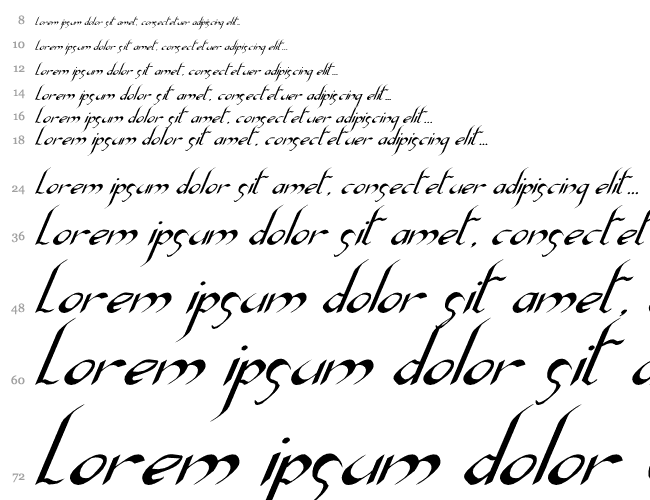 8 Lorem ipsum dolor sit amet, consectetuer adipiscing elit...
10 Lorem ipsum dolor sit amet, consectetuer adipiscing elit...
12 Lorem ipsum dolor sit amet, consectetuer adipiscing elit...
14 Lorem ipsum dolor sit amet, consectetuer adipiscing elit...
16 Lorem ipsum dolor sit amet, consectetuer adipiscing elit...
18 Lorem ipsum dolor sit amet, consectetuer adipiscing elit...
24 Lorem ipsum dolor sit amet, consectetuer adipiscing elit...
36 Lorem ipsum dolor sit amet, consectet
48 Lorem ipsum dolor sit amet,
60 Lorem ipsum dolor sit
72 Lorem ipsum dolor